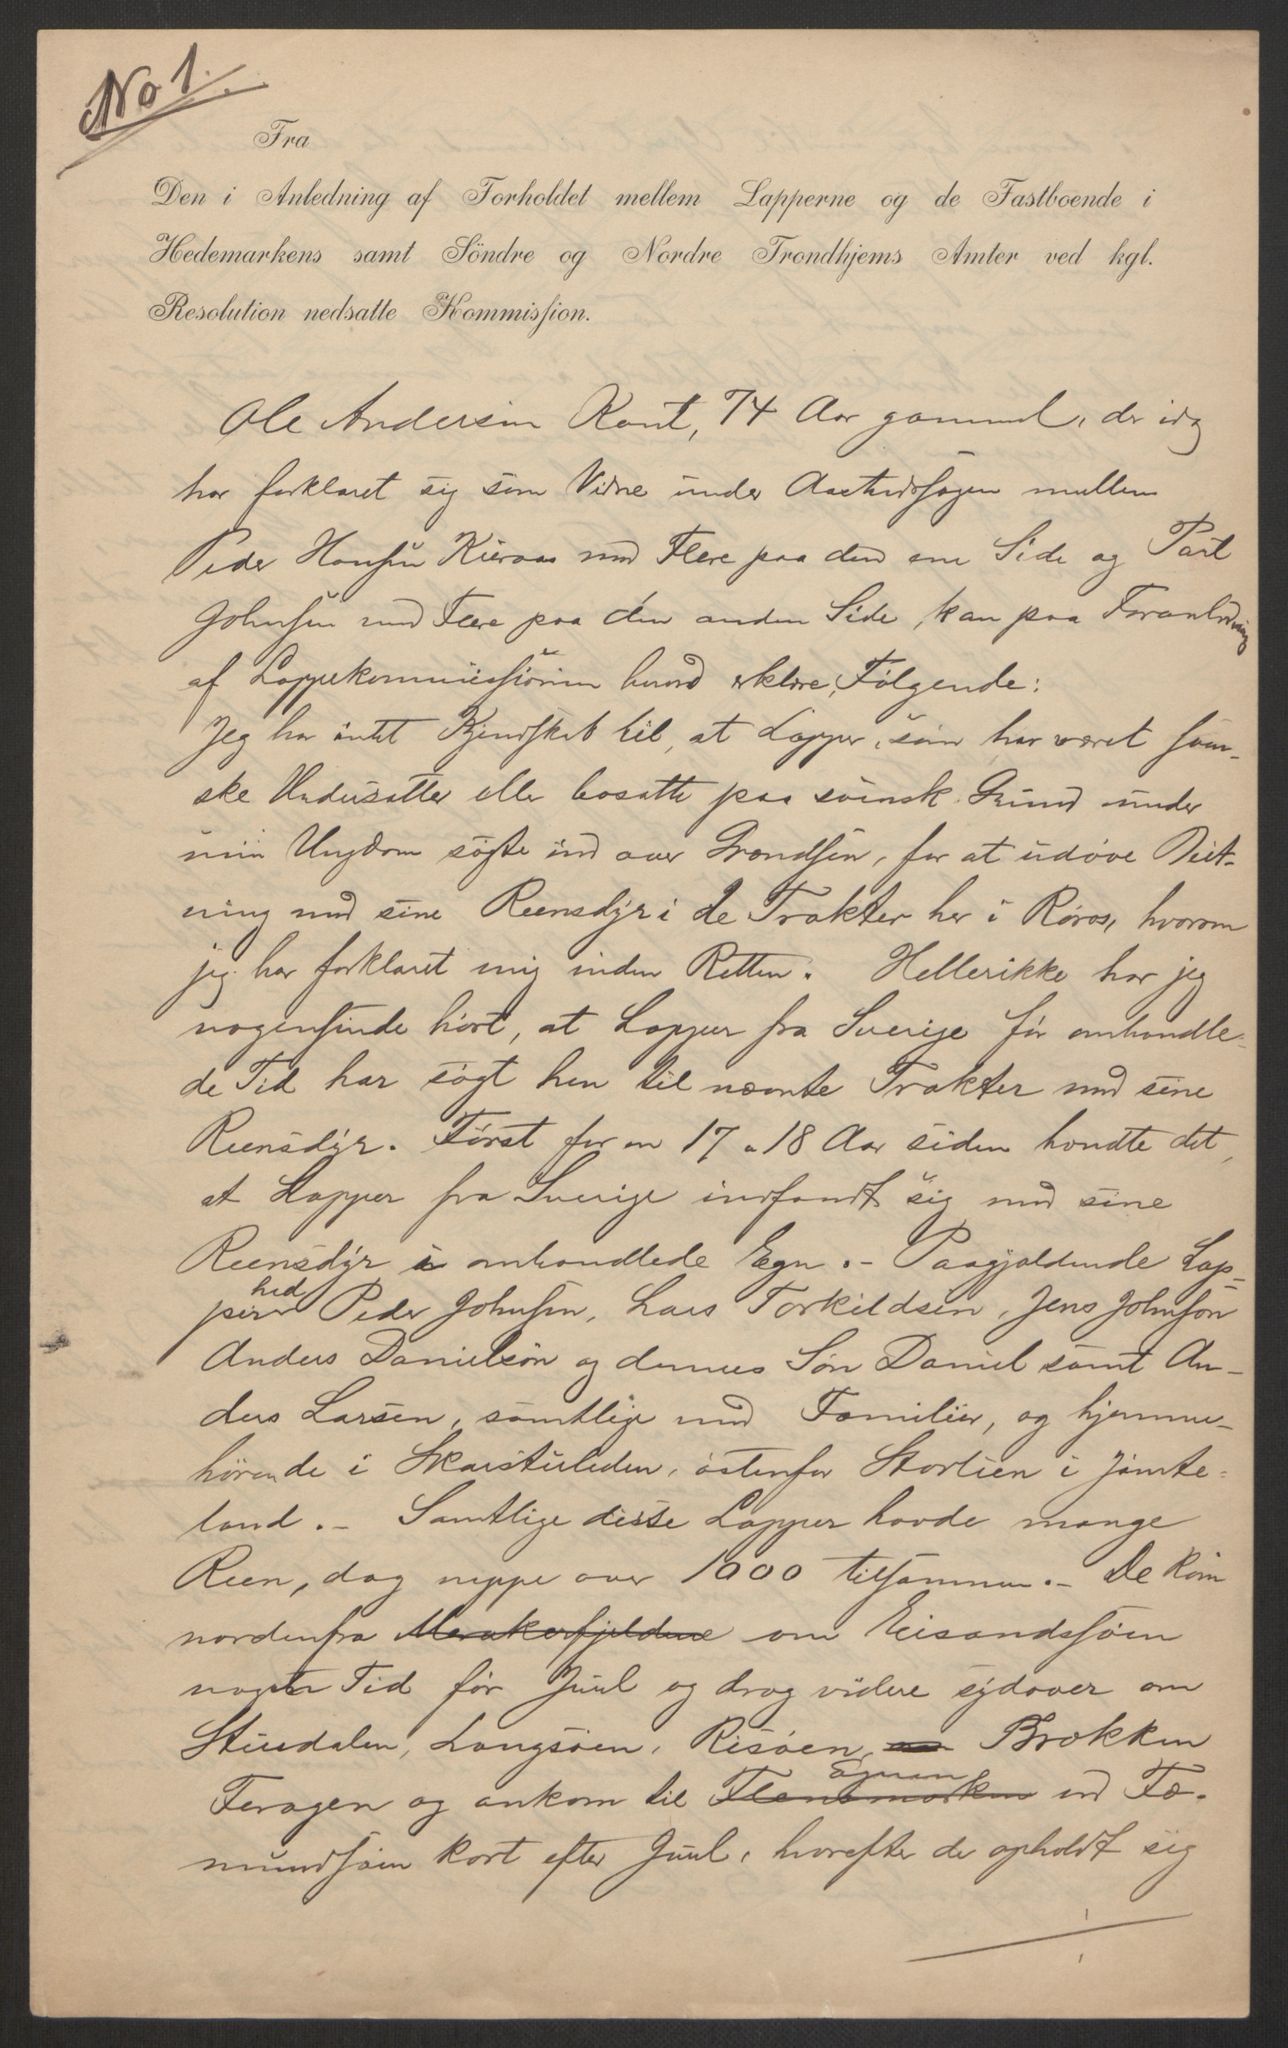 No 1.
Fra
Den i Anledning af Forholdet mellem Lapperne og de Fastboende i
Hedemarkens samt Söndre og Nordre Trondhjems Amter ved kgl.
Resolution nedsatte Kommission.
Ole Andersen Kant, 74 Aar gammel, der idag
har forklaret sig som Vidne under Aastedssagen mellem
Peder Hansen Kuraas med Flere paa den ene Side og Paul
Johnsen med Flere paa den anden Side, kan paa Foranledning
af Lappekommissionen herved erklære Følgende:
Jeg har intet Kjendskab til, at Lapper, som har været sven-
ske Undersatter eller bosatte paa svensk Grund under
min Ungdom søgte ind over Grændsen, for at udøve Beit-
ning med sine Reensdyr i de Trakter her i Røros, hvorom
jeg har forklaret mig inden Retten. Heller ikke har jeg
nogensinde hørt, at Lapper fra Sverige før omhandle-
de Tid har søgt hen til nævnte Trakter med sine
Reensdyr. Først for en 17 a 18 Aar siden hændte det,
at Lapper fra Sverige indfandt sig med sine
Reensdyr i omhandlede Egn. - Paagjældende Lap-
per hed Peder Johnsen, Lars Torkildsen, Jens Johnsen
Anders Danielsøn og dennes Søn Daniel samt An-
ders Larsen, samtlige med Familier, og hjemme-
hørende i Skurstuleden, østenfor Storlien i Jämte-
land. - Samtlige disse Lapper havde mange
Reen, dog neppe over 1000 tilsammen. - De kom
nordenfra Merakerfjeldene om Essandsjøen
nogen Tid før Juul og drog videre sydover om
Stuedalen, Langsøen, Risøen, Brækken
Feragen og ankom til Flensmarken ved Fæ-
mundsøen kort efter Juul, hvorefter de opholdt sig